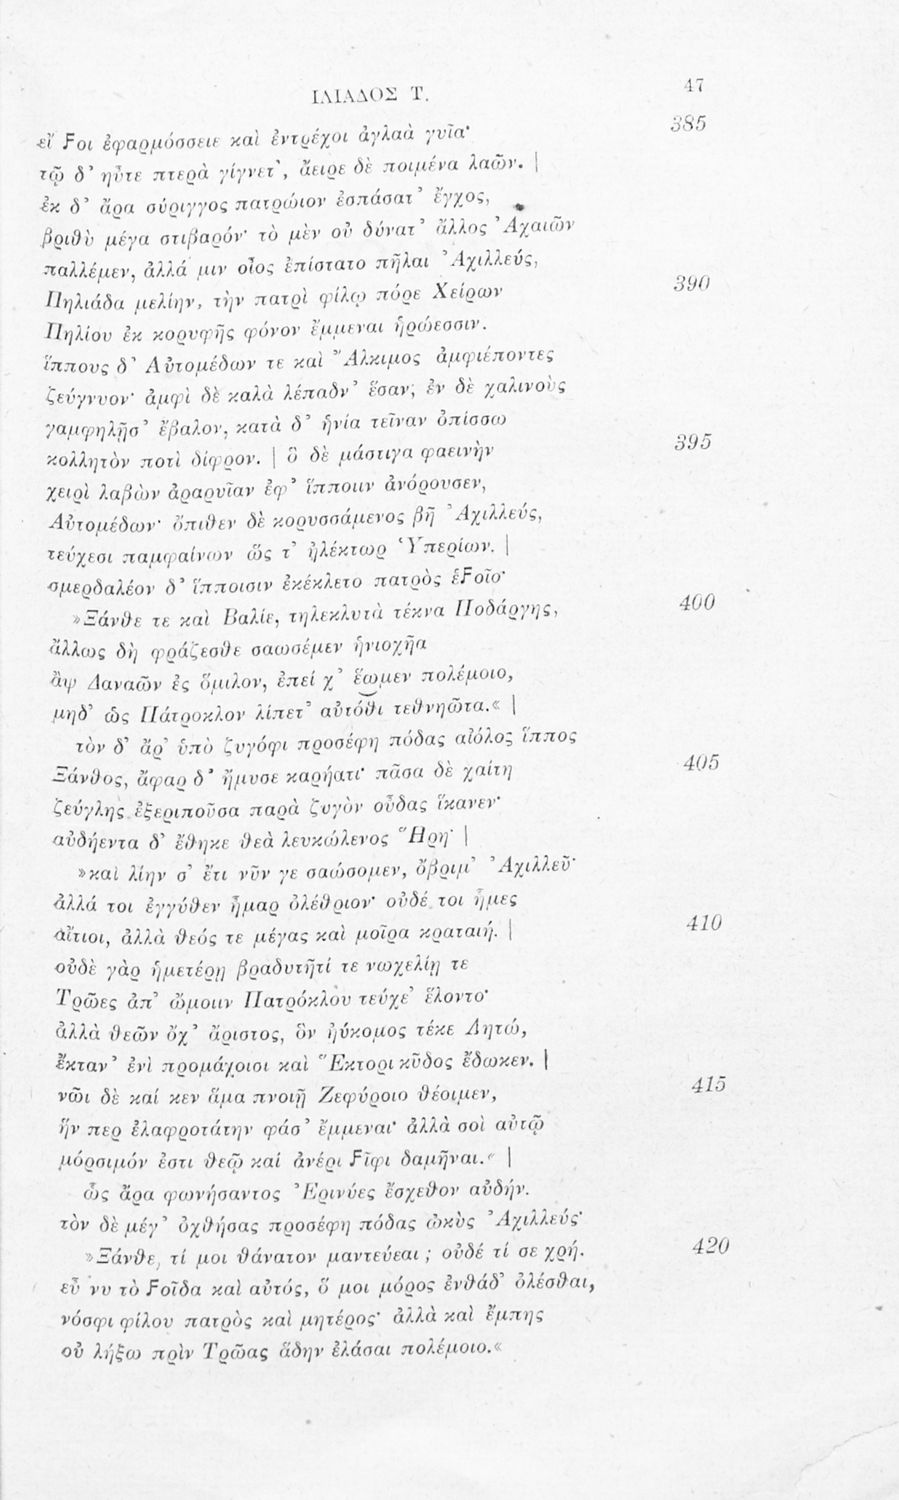 ΙΛΙΑΔΟΣ Τ. 47
εἴ Ϝοι ἐφαρμόσσειε καὶ ἐντρέχοι ἀγλαὰ γυῖα· 385
τῷ δ᾽ ηὖτε πτερὰ γίγνετ᾽, ἄειρε δὲ ποιμένα λαῶν. |
ἐκ δ᾽ ἄρα σύριγγος πατρώιον ἐσπάσατ᾽ ἔγχος,
βριθὺ μέγα στιβαρόν· τὸ μὲν οὐ δύνατ᾽ ἄλλος Ἀχαιῶν
παλλέμεν, ἀλλά μιν οἶος ἐπίστατο πῆλαι Ἀχιλλεύς,
Πηλιάδα μελίην, τὴν πατρὶ φίλῳ πόρε Χείρων 390
Πηλίου ἐκ κορυφῆς φόνον ἔμμεναι ἡρώεσσιν.
ἵππους δ᾽ Αὐτομέδων τε καὶ Ἄλκιμος ἀμφιέποντες
ζεύγνυον· ἀμφὶ δὲ καλὰ λέπαδν᾽ ἕσαν, ἐν δὲ χαλινοὺς
γαμφηλῇσ᾽ ἔβαλον, κατὰ δ᾽ ἡνία τεῖναν ὀπίσσω
κολλητὸν ποτὶ δίφρον. | ὃ δὲ μάστιγα φαεινὴν 395
χειρὶ λαβὼν ἀραρυῖαν ἐφ᾽ ἵπποιιν ἀνόρουσεν,
Αὐτομέδων· ὄπιθεν δὲ κορυσσάμενος βῆ Ἀχιλλεύς,
τεύχεσι παμφαίνων ὥς τ᾽ ἠλέκτωρ Ὑπερίων. |
σμερδαλέον δ᾽ ἵπποισιν ἐκέκλετο πατρὸς ἑϜοῖο·
»Ξάνθε τε καὶ Βαλίε, τηλεκλυτὰ τέκνα Ποδάργης, 400
ἄλλως δὴ φράζεσθε σαωσέμεν ἡνιοχῆα
ἂψ Δαναῶν ἐς ὅμιλον, ἐπεί χ᾽ ἕωμεν πολέμοιο,
μηδ᾽ ὡς Πάτροκλον λίπετ᾽ αὐτόθι τεθνηῶτα.« |
τὸν δ᾽ ἄρ᾽ ὑπὸ ζυγόφι προσέφη πόδας αἰόλος ἵππος
Ξάνθος, ἄφαρ δ᾽ ἤμυσε καρήατι· πᾶσα δὲ χαίτη 405
ζεύγλης ἐξεριποῦσα παρὰ ζυγὸν οὖδας ἵκανεν·
αὐδήεντα δ᾽ ἔθηκε θεὰ λευκώλενος Ἥρη· |
»καὶ λίην σ᾽ ἔτι νῦν γε σαώσομεν, ὄβριμ᾽ Ἀχιλλεῦ·
ἀλλά τοι ἐγγύθεν ἦμαρ ὀλέθριον· οὐδέ τοι ἦμες
αἴτιοι, ἀλλὰ θεός τε μέγας καὶ μοῖρα κραταιή. | 410
οὐδὲ γὰρ ἡμετέρῃ βραδυτῆτί τε νωχελίῃ τε
Τρῶες ἀπ᾽ ὤμοιιν Πατρόκλου τεύχε᾽ ἕλοντο·
ἀλλὰ θεῶν ὄχ᾽ ἄριστος, ὃν ἠύκομος τέκε Λητώ,
ἔκταν᾽ ἐνὶ προμάχοισι καὶ Ἕκτορι κῦδος ἔδωκεν. |
νῶι δὲ καί κεν ἅμα πνοιῇ Ζεφύροιο θέοιμεν, 415
ἥν περ ἐλαφροτάτην φάσ᾽ ἔμμεναι· ἀλλὰ σοὶ αὐτῷ
μόρσιμόν ἐστι θεῷ καί ἀνέρι Ϝῖφι δαμῆναι.« |
ὣς ἄρα φωνήσαντος Ἐρινύες ἔσχεθον αὐδήν.
τὸν δὲ μέγ᾽ ὀχθήσας προσέφη πόδας ὠκὺς Ἀχιλλεύς·
»Ξάνθε, τί μοι θάνατον μαντεύεαι; οὐδέ τί σε χρή. 420
εὖ νυ τὸ Ϝοῖδα καὶ αὐτός, ὅ μοι μόρος ἐνθάδ᾽ ὀλέσθαι,
νόσφι φίλου πατρὸς καὶ μητέρος· ἀλλὰ καὶ ἔμπης
οὐ λήξω πρὶν Τρῶας ἅδην ἐλάσαι πολέμοιο.«